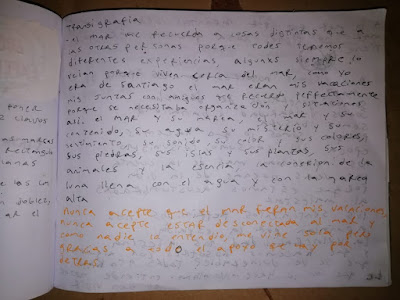 poner
clavos
-el mar me recuerda a cosas distintas que a
las otras personas porque todos tenemos
diferentes experiencias, algunxs siempre lo
veian porque viven cerca del mar, como yo
era de santiago el mar eran mis vacaciones
mis juntas con amigxs que recuerdo perfectamente
porque se necesitaba organización y situaciones
alli. el mar y su marea, el mar y su
contenido, su agua su misterio y su
su sonido su color sus colores,
sus piedras, sus islas y sus plantas, sus
animales y la esencia la conexion de la
luna llena con el agua y con la marea
alta
nunca acepte que el mar eran mis vacaciones
nunca acepte estar desconectada al mar y
como nadie lo entendio, me vine sola pero
gracias a todo el apoyo que hay por
detras.